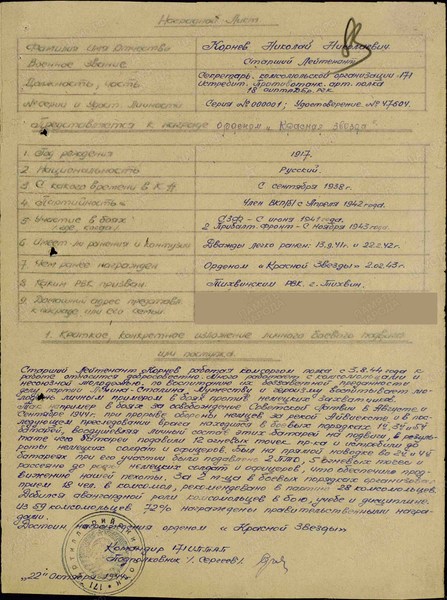 Наградной Лист
Фамилия Имя Отчество Корнев Николай Николаевич
Военное звание Старший Лейтенант
Должность, часть Секретарь комсомольской организации 171
истребит. Противотанк. арт. полка
№ серии и удост. личности Серия № 000001; Удостоверение № 47504.
Представляется к награде орденом „Красная Звезда"
1. Год рождения 1917.
2. Национальность Русский.
3. С какого времени в К.А С сентября 1938г.
4. Партийность Член ВКП/б/ с Апреля 1942 года.
5. Участие в боях СЗФ - С июня 1941 года.
2 Прибалт. Фронт - С Ноября 1943 года.
6. Имеет ли ранения и контузии Дважды легко ранен: 22.2.42г.
7. Чем ранее награжден Орденом „Красной Звезды" 2.02.43г.
8. Каким РВК призван Тихвинским РВК. г. Тихвин.
9. Домашний адрес
к награде или его семьи
1. Краткое, конкретное изложение личного боевого подвига
или заслуга.
Старший Лейтенант Корнев работая комсоргом полка с 5.8.44 года к
работе относится добросовестно. Много работает с комсомольцами и
несоюзной молодежью, по воспитанию их беззаветной преданности
делу партии Ленина-Сталина. Мужеству и героизму воспитывает мо-
лодежь личным примером в боях против немецких захватчиков.
Так например в боях за освобождение Советской Латвии в Августе и
Сентябре 1944г. при прорыве обороны немцев за рекой и в пос-
ледующем преследовании врага находился в боевых порядках
батарей, воодушевляя личный состав этих батарей на подвиги, в резуль-
тате чего батареи подавили 12 огневых точек пр-ка и истребили до
роты немецких солдат и офицеров, был на прямой наводке во 2й и 4й
батареях при его участии было подавлено 5 огневых точек и
рассеяно до роты немецких солдат и офицеров, что обеспечило прод-
вижение нашей пехоты. За 2 м-ца в боевых порядках организаци
принял 18 чел. в комсомол, рекомендовано в партию 28 комсомольцев.
Добился авангардной роли комсомольцев в бою, учебе и дисциплине
из 59 комсомольцев 72% награждены правительственными награ-
дами.
Достоин награждения орденом „Красной Звезды"
Командир 171
Подполковник /Сергеев/
"22" Октября 1944г